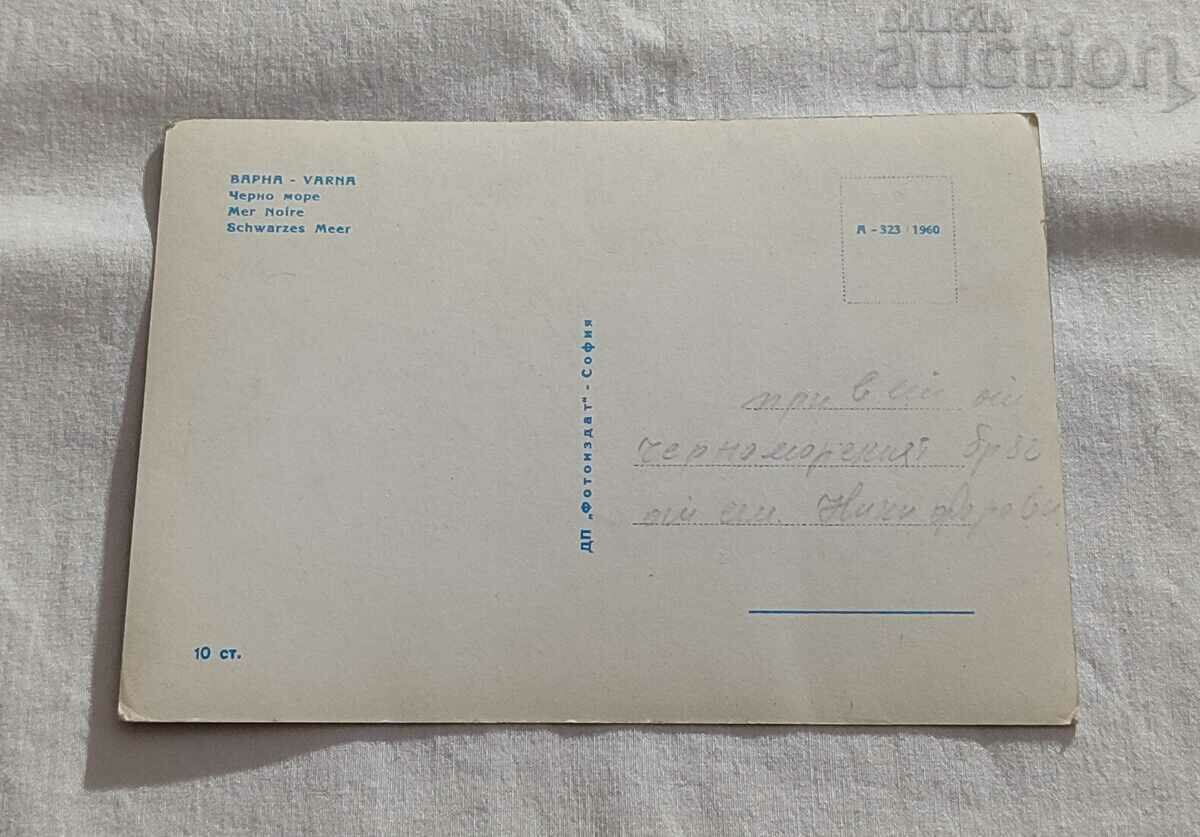 ВАРНА - VARNA
Черно море
Mer Noire
Schwarzes Meer
А - 323 1960
ДП „Фотоиздат" - София
привет от
черноморският бряг
от сем. Никифорови
10 ст.